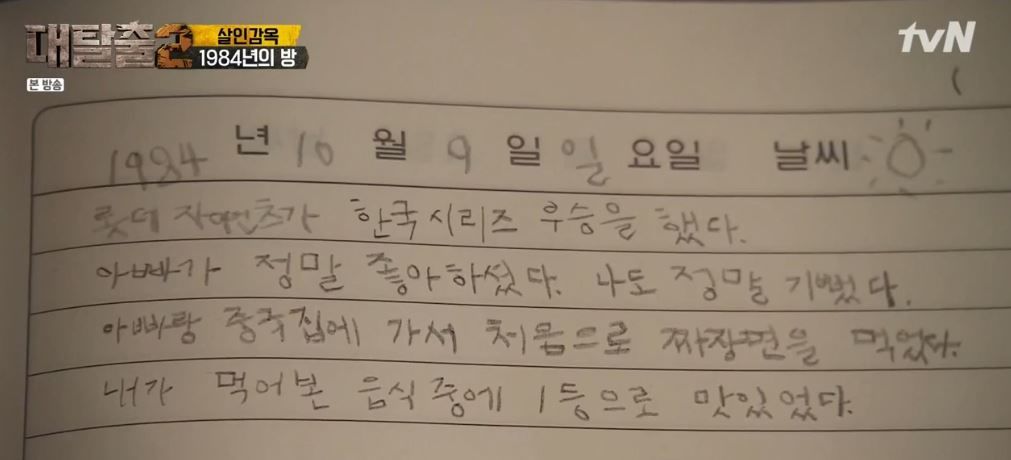 대탈출2
살인감옥
1984년의 방
tvN
본 방송
1984 년 10 월 9 일 일 요일 날씨
롯데 자이언츠가 한국시리즈 우승을 했다.
아빠가 정말 좋아하셨다. 나도 정말 기뻤다.
아빠랑 중국집에 가서 처음으로 짜장면을 먹었다.
내가 먹어본 음식 중에 1등으로 맛있었다.